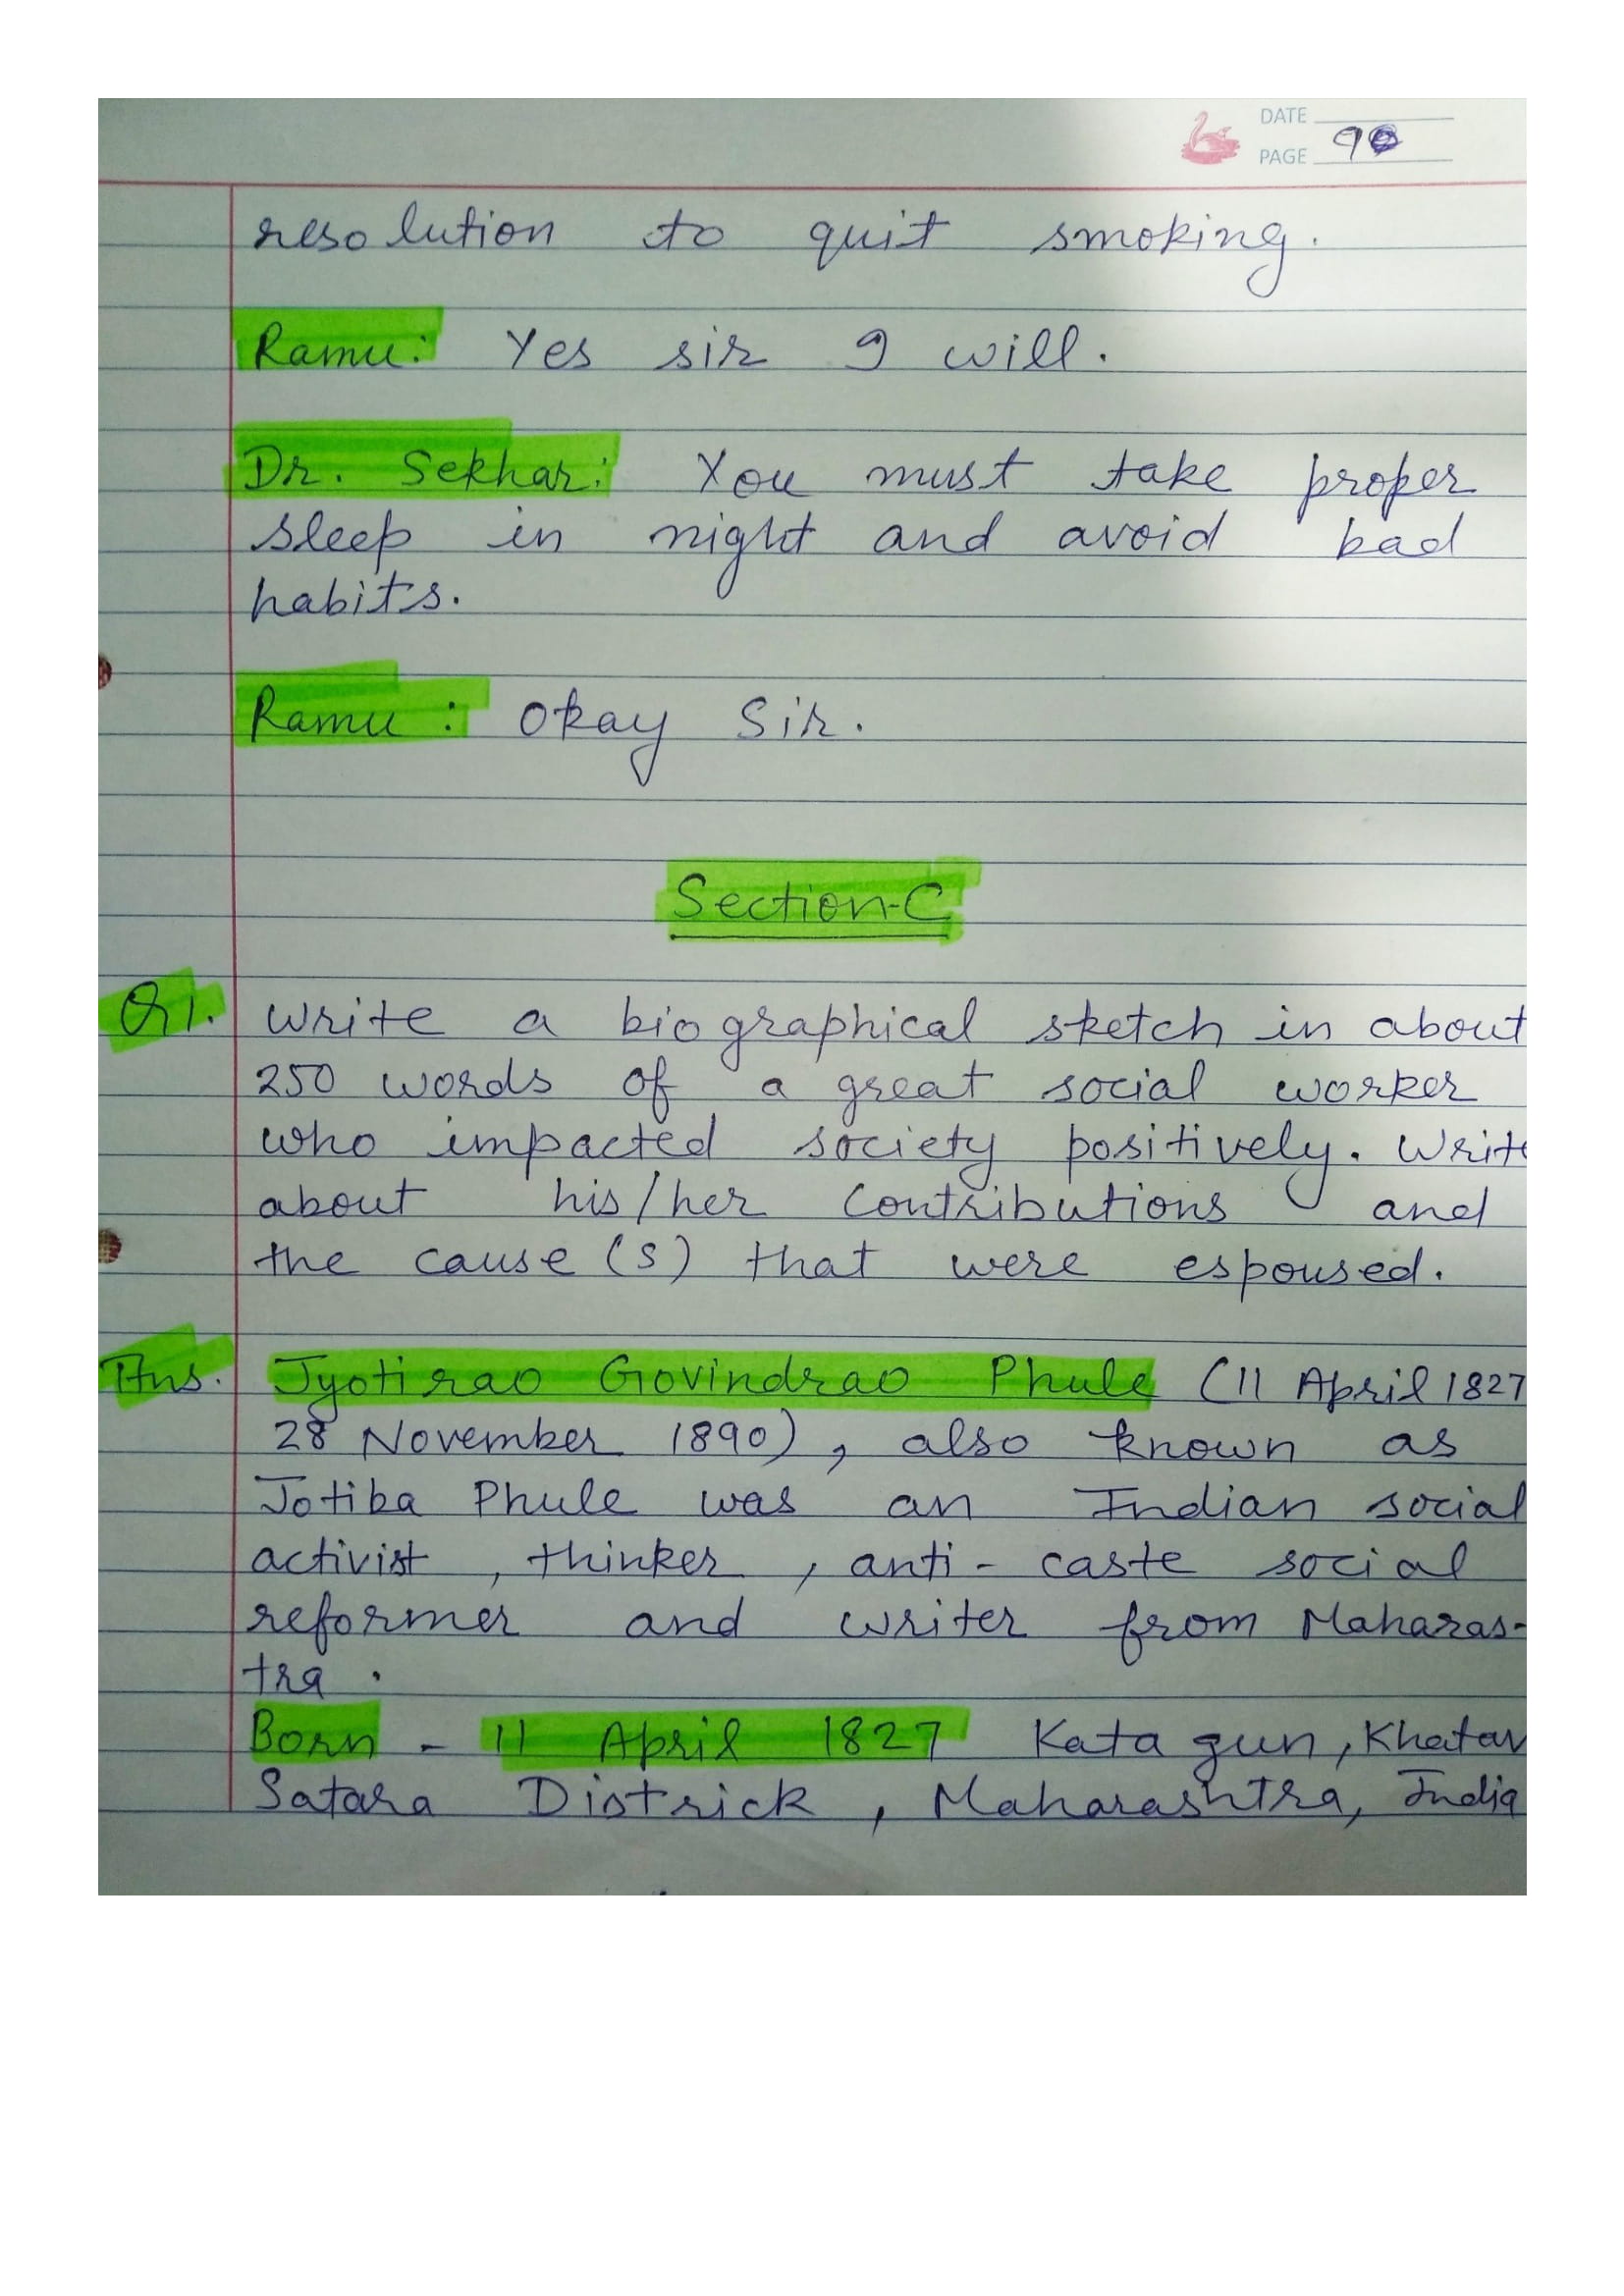 DATE
PAGE 90
resolution to quit smoking.
Ramu: Yes sir I will.
Dr. Sekhar: You must take proper
sleep in night and avoid bad
habits.
Ramu : Okay Sir.
Section-C
Q1. Write a biographical sketch in about
250 words of a great social worker
who impacted society positively. Write
about his/her Contributions and
the cause (s) that were espoused.
Ans. Jyotirao Govindrao Phule (11 April 1827
28 November 1890), also known as
Jotiba Phule was an Indian social
activist, thinker, anti-caste social
reformer and writer from Maharas-
tra.
Born - 11 April 1827 Katagun, Khatav
Satara Districk, Maharashtra, India